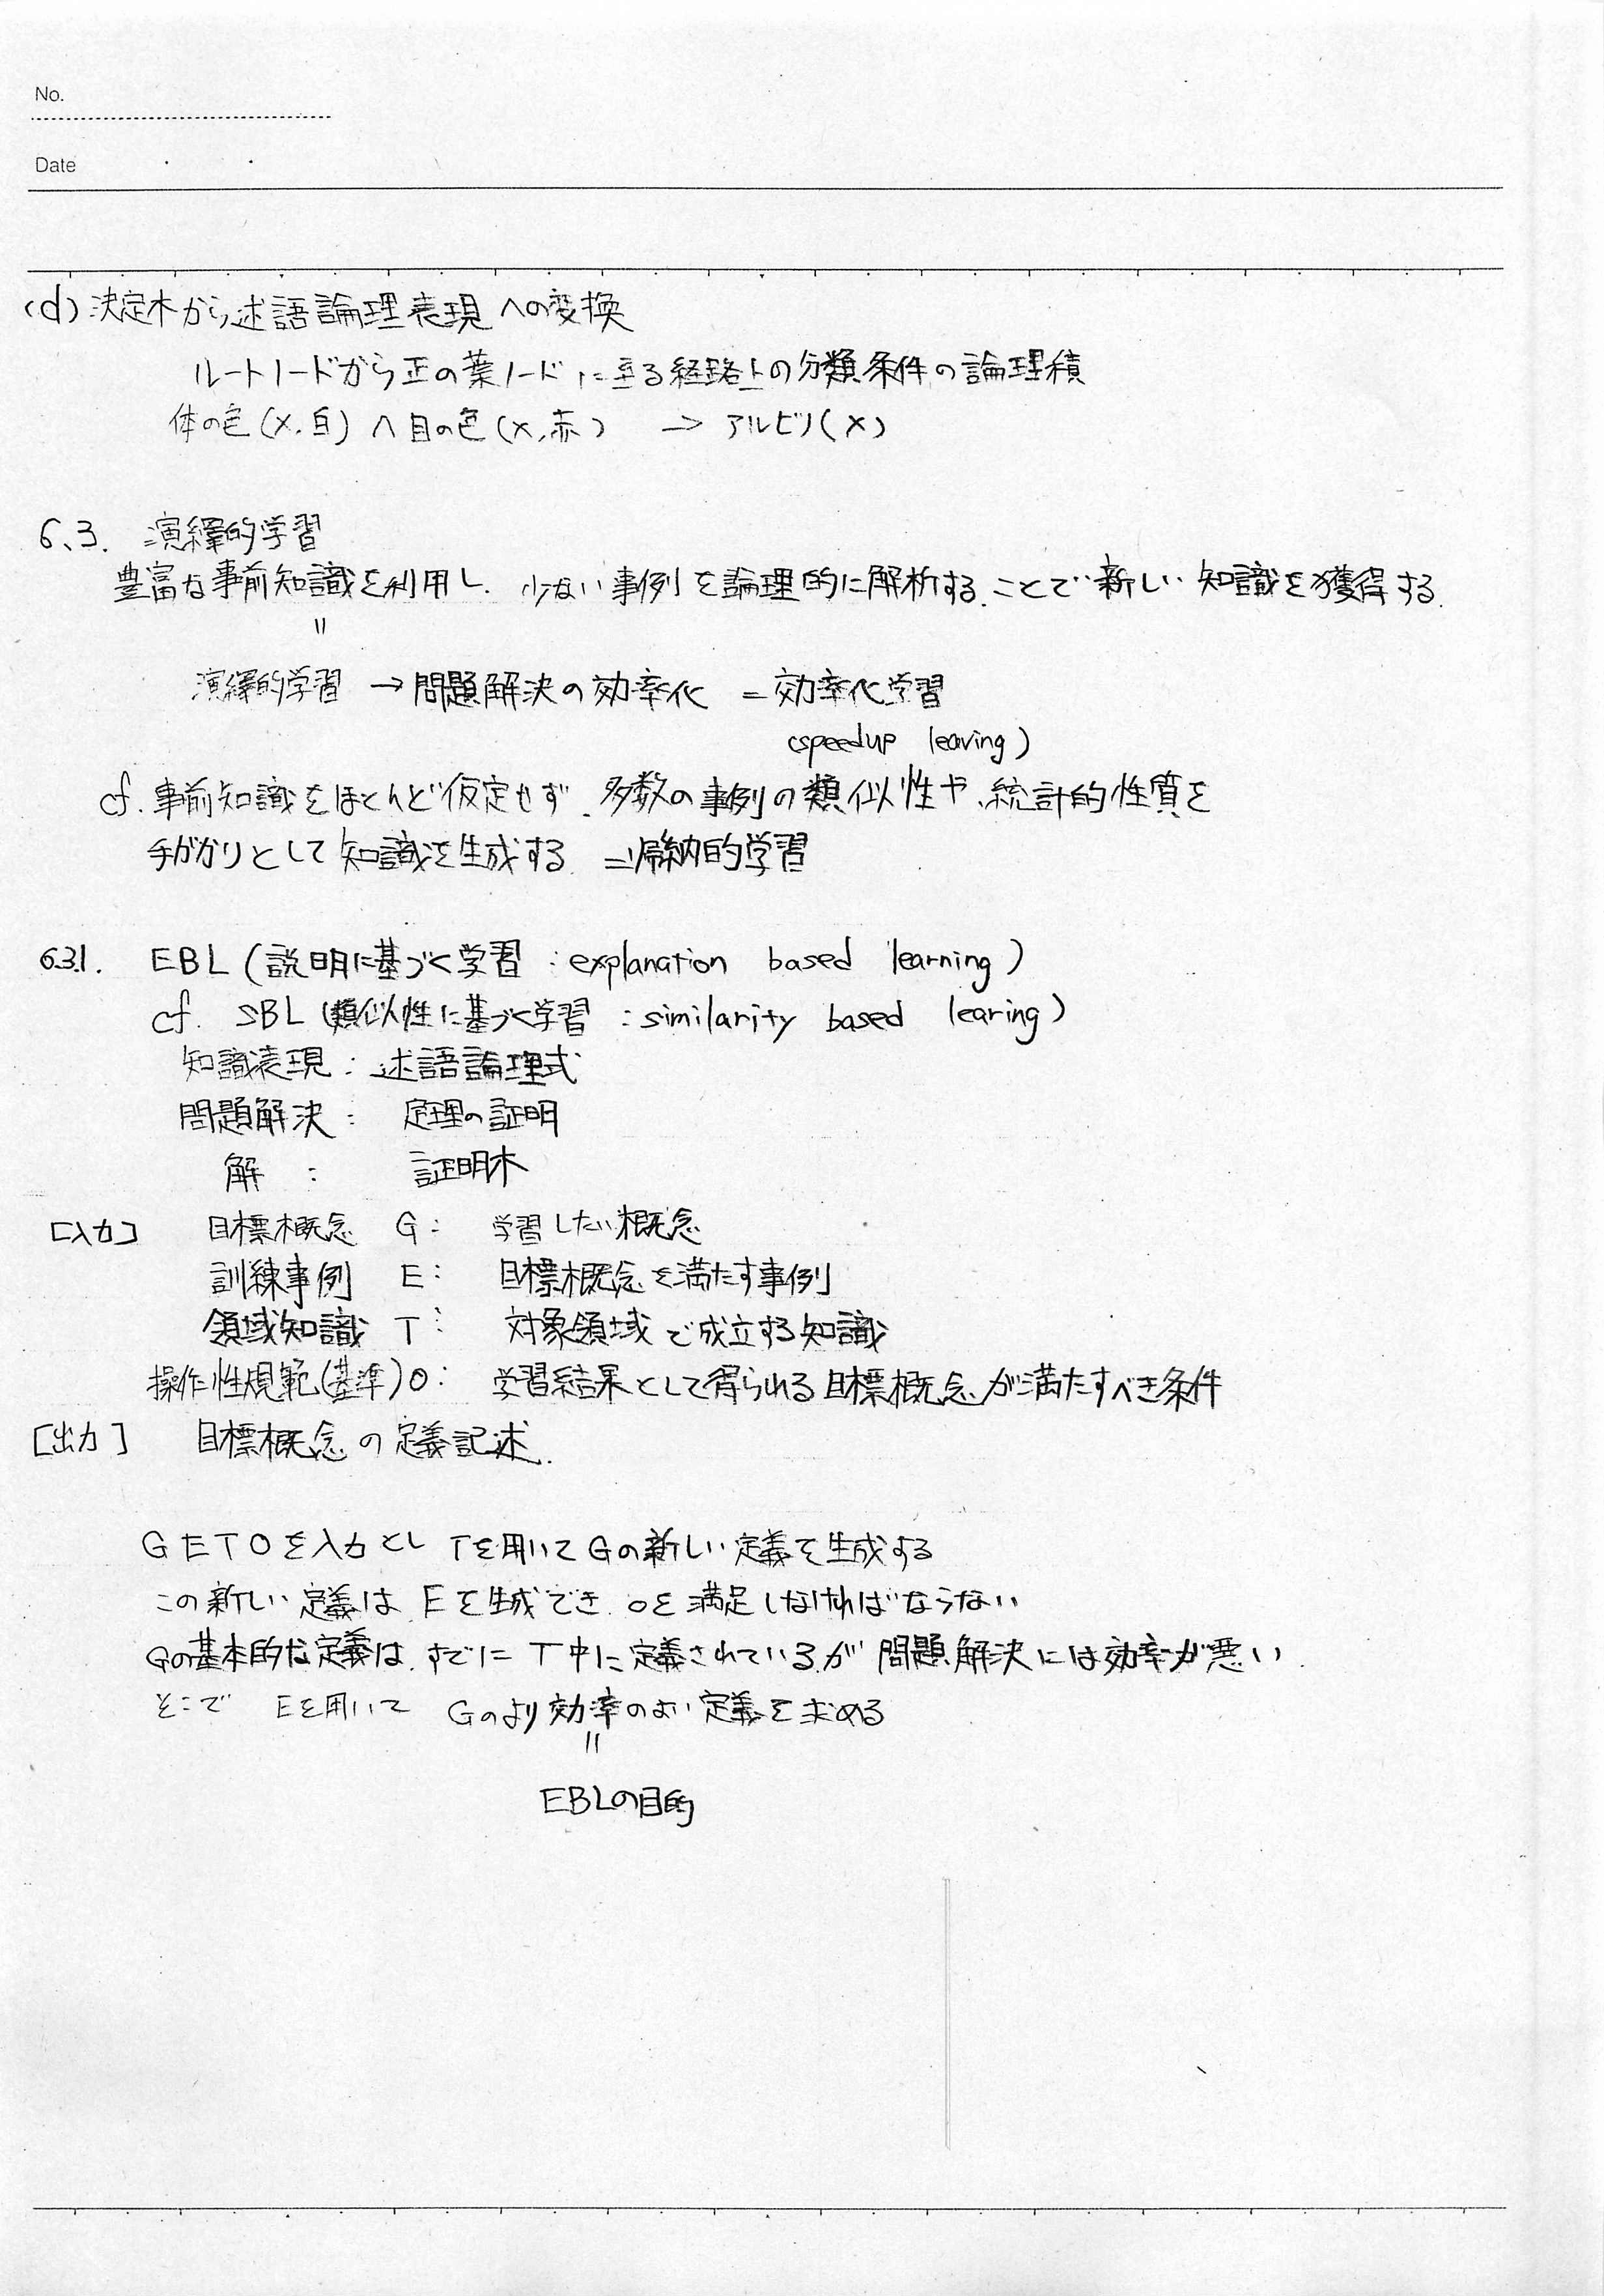 No.
Date
(d) 決定木から述語論理表現への変換
ルートノードから正の葉ノードに至る経路上の分類条件の論理積
体の色(X,白) ∧ 目の色(X,赤) → アルビノ(X)
6.3. 演繹的学習
豊富な事前知識を利用し、少ない事例を論理的に解析することで新しい知識を獲得する.
=
演繹的学習 → 問題解決の効率化 = 効率化学習
(speedup learing)
cf. 事前知識をほとんど仮定せず、多数の事例の類似性や、統計的性質を
手がかりとして知識を生成する. = 帰納的学習
6.3.1. EBL (説明に基づく学習 : explanation based learning)
cf. SBL (類似性に基づく学習 : similarity based learing)
知識表現 : 述語論理式
問題解決 : 定理の証明
解 : 証明木
[入力] 目標概念 G : 学習したい概念
訓練事例 E : 目標概念を満たす事例
領域知識 T : 対象領域で成立する知識
操作性規範(基準) O : 学習結果として得られる目標概念が満たすべき条件
[出力] 目標概念の定義記述.
G E T O を入力とし Tを用いてGの新しい定義を生成する
この新しい定義は Eを生成でき Oを満足しなければならない
Gの基本的な定義は、すでに T中に定義されているが 問題解決には効率が悪い.
そこで Eを用いて Gのより効率のよい定義を求める
=
EBLの目的